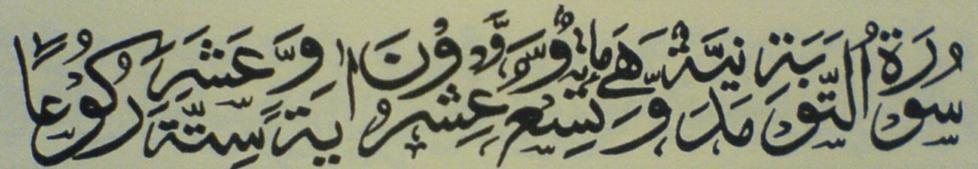 سُوْرَةُ التَّوْبَةِ مَدَنِيَّةٌ وَّهِيَ مِائَةٌ وَّتِسْعٌ وَّعِشْرُوْنَ اٰيَةً وَّسِتَّةَ عَشَرَ رُكُوْعًا